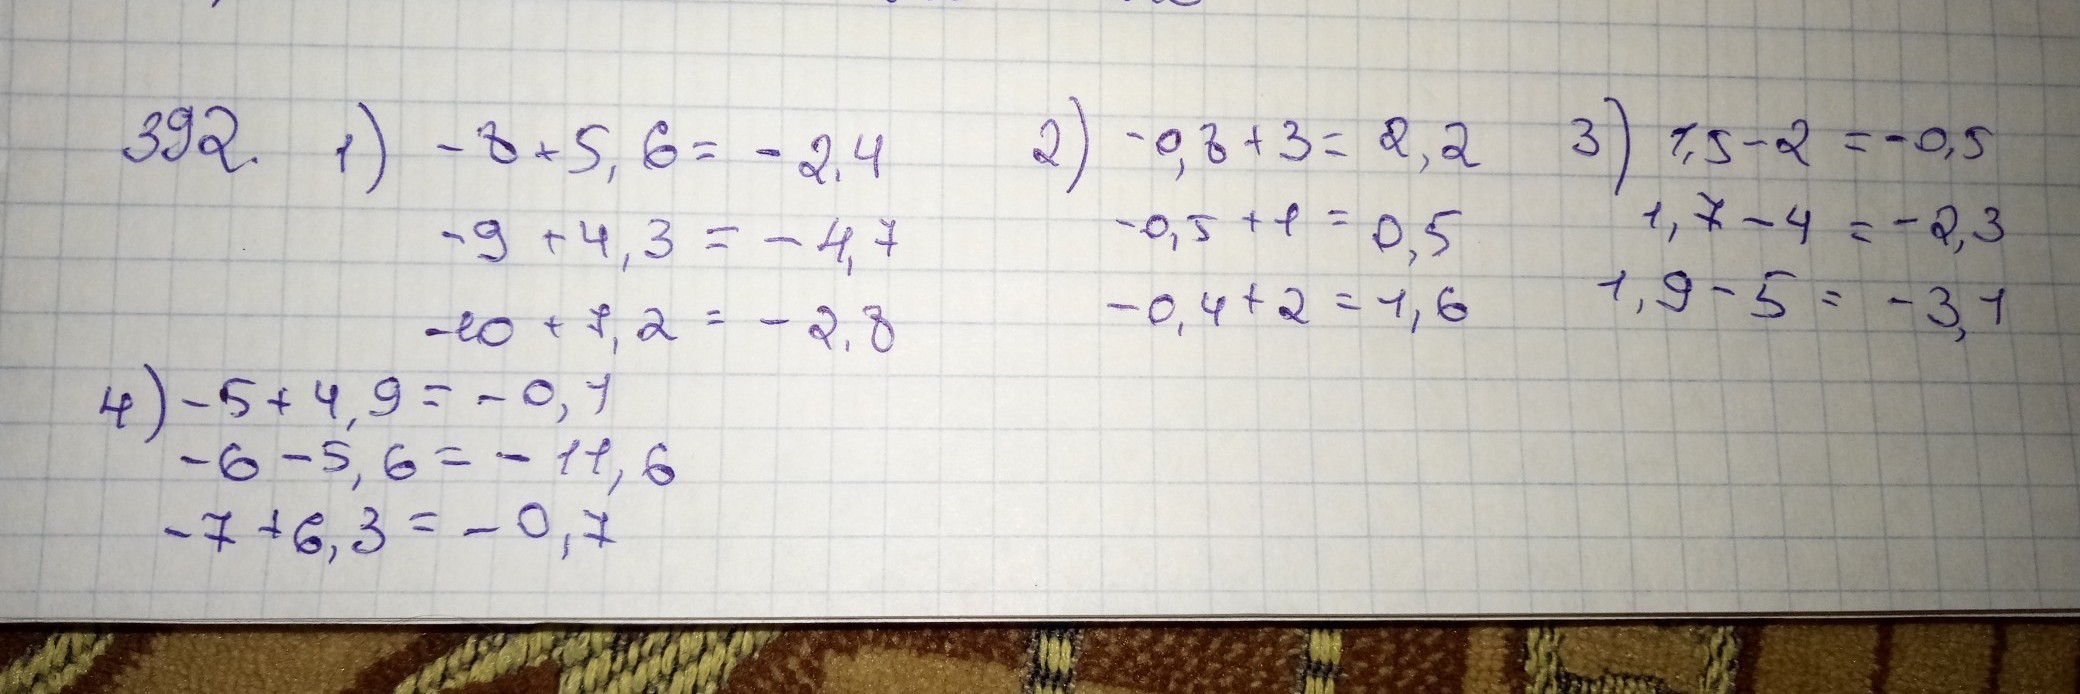 392. 1) -8+5,6= -2,4 2) -0,8+3= 2,2 3) 1,5-2 =-0,5
-9 +4,3 = -4,7 -0,5 +1 = 0,5 1,7-4 = -2,3
-10 +7,2 = -2,8 -0,4+2 =1,6 1,9-5 = -3,1
4) -5+4,9= -0,1
-6-5,6= -11,6
-7+6,3= -0,7